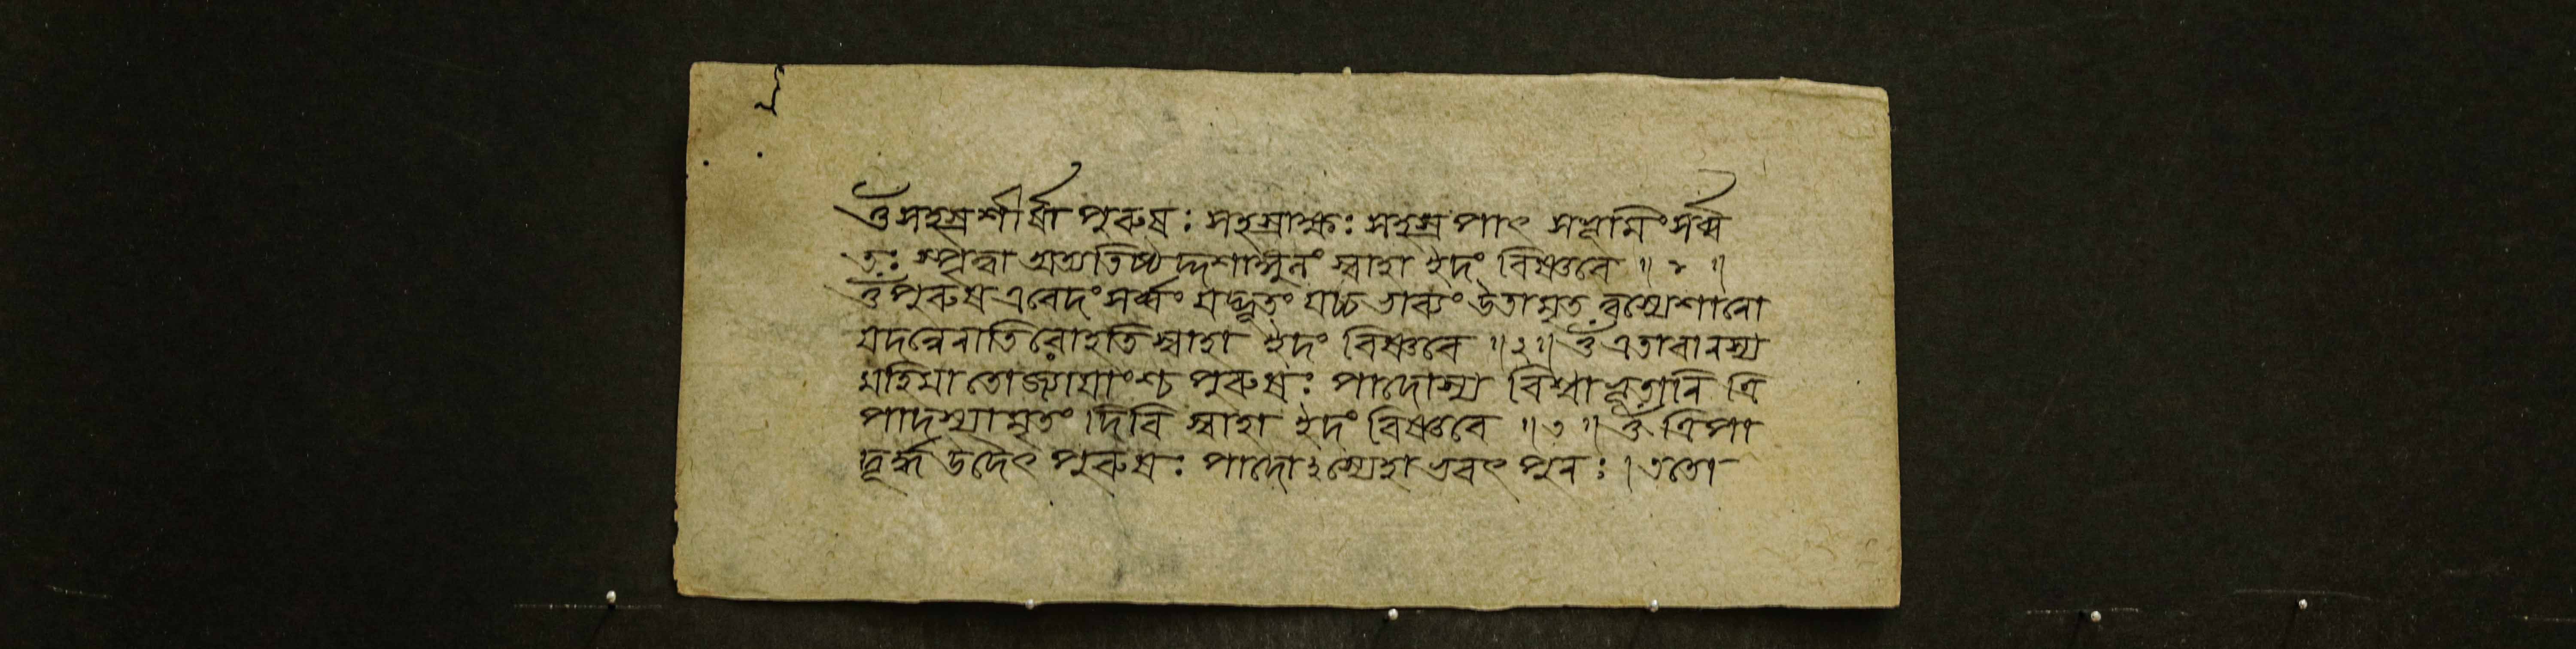 ওঁ সহস্রশীর্ষা পুৰুষঃ সহস্রাক্ষঃ সহস্রপাৎ সভূমিং সর্ব্ব
তঃ স্পৃত্বা অত্যতিষ্ঠদ্দশাঙ্গুলং স্বাহা ইদং বিষ্ণবে ॥ ১ ॥
ওঁ পুৰুষ এবেদং সর্ব্বং যদ্ভূতং যচ্চ ভাব্যং উতামৃতত্বস্যেশানো
যদন্নেনাতিৰোহতি স্বাহা ইদং বিষ্ণবে ॥ ২ ॥ ওঁ এতাবানস্য
মহিমাতোজ্যায়াংশ্চ পুৰুষঃ পাদোস্য বিশ্বাভূতানি ত্রি
পাদস্যামৃতং দিবি স্বাহা ইদং বিষ্ণবে ॥ ৩ ॥ ওঁ ত্রিপা
দূর্দ্ধ উদৈৎ পুৰুষঃ পাদোঽস্যেহাভবৎ পুনঃ । ততো